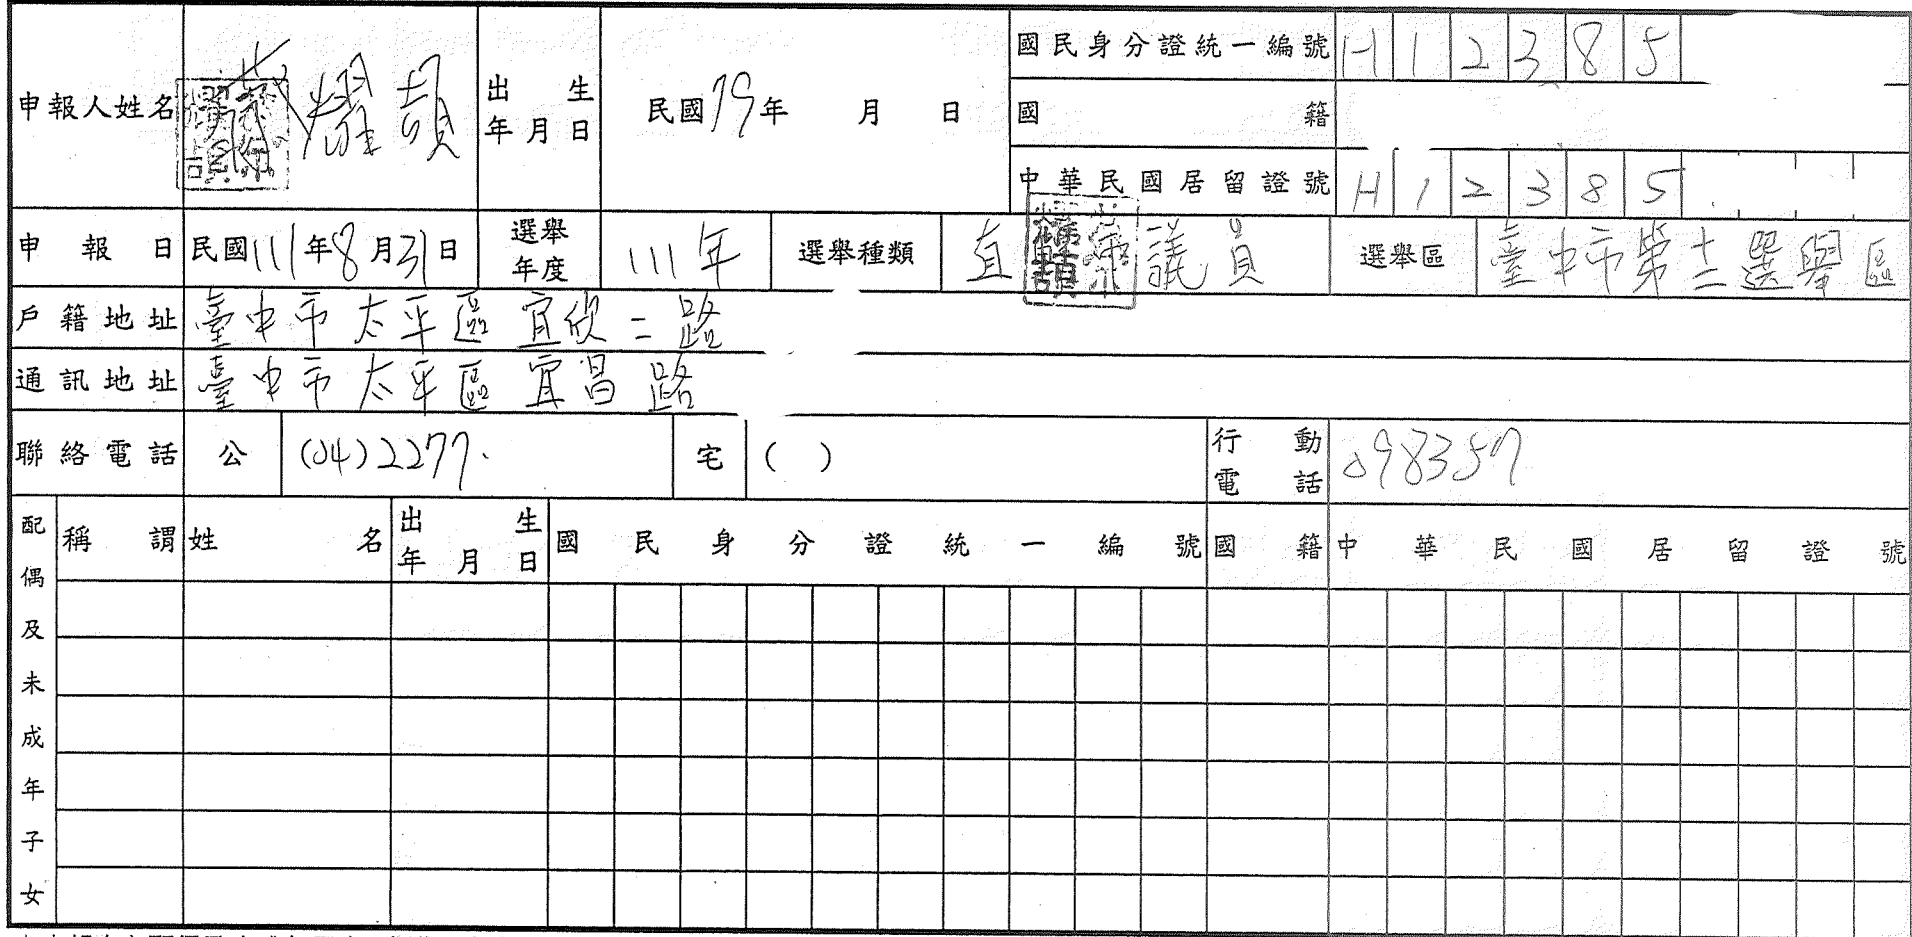 申報人姓名 蔡耀頡 出生年月日 民國79年 月 日 國民身分證統一編號 H12385
國籍
中華民國居留證號 H12385
申報日 民國111年8月31日 選舉年度 111年 選舉種類 直 議員 選舉區 臺中市第十二選舉區
戶籍地址 臺中市太平區宜欣二路
通訊地址 臺中市太平區宜昌路
聯絡電話 公 (04)2277 宅 ( ) 行動電話 098357
配偶及未成年子女 稱謂 姓名 出生年月日 國民身分證統一編號 國籍 中華民國居留證號